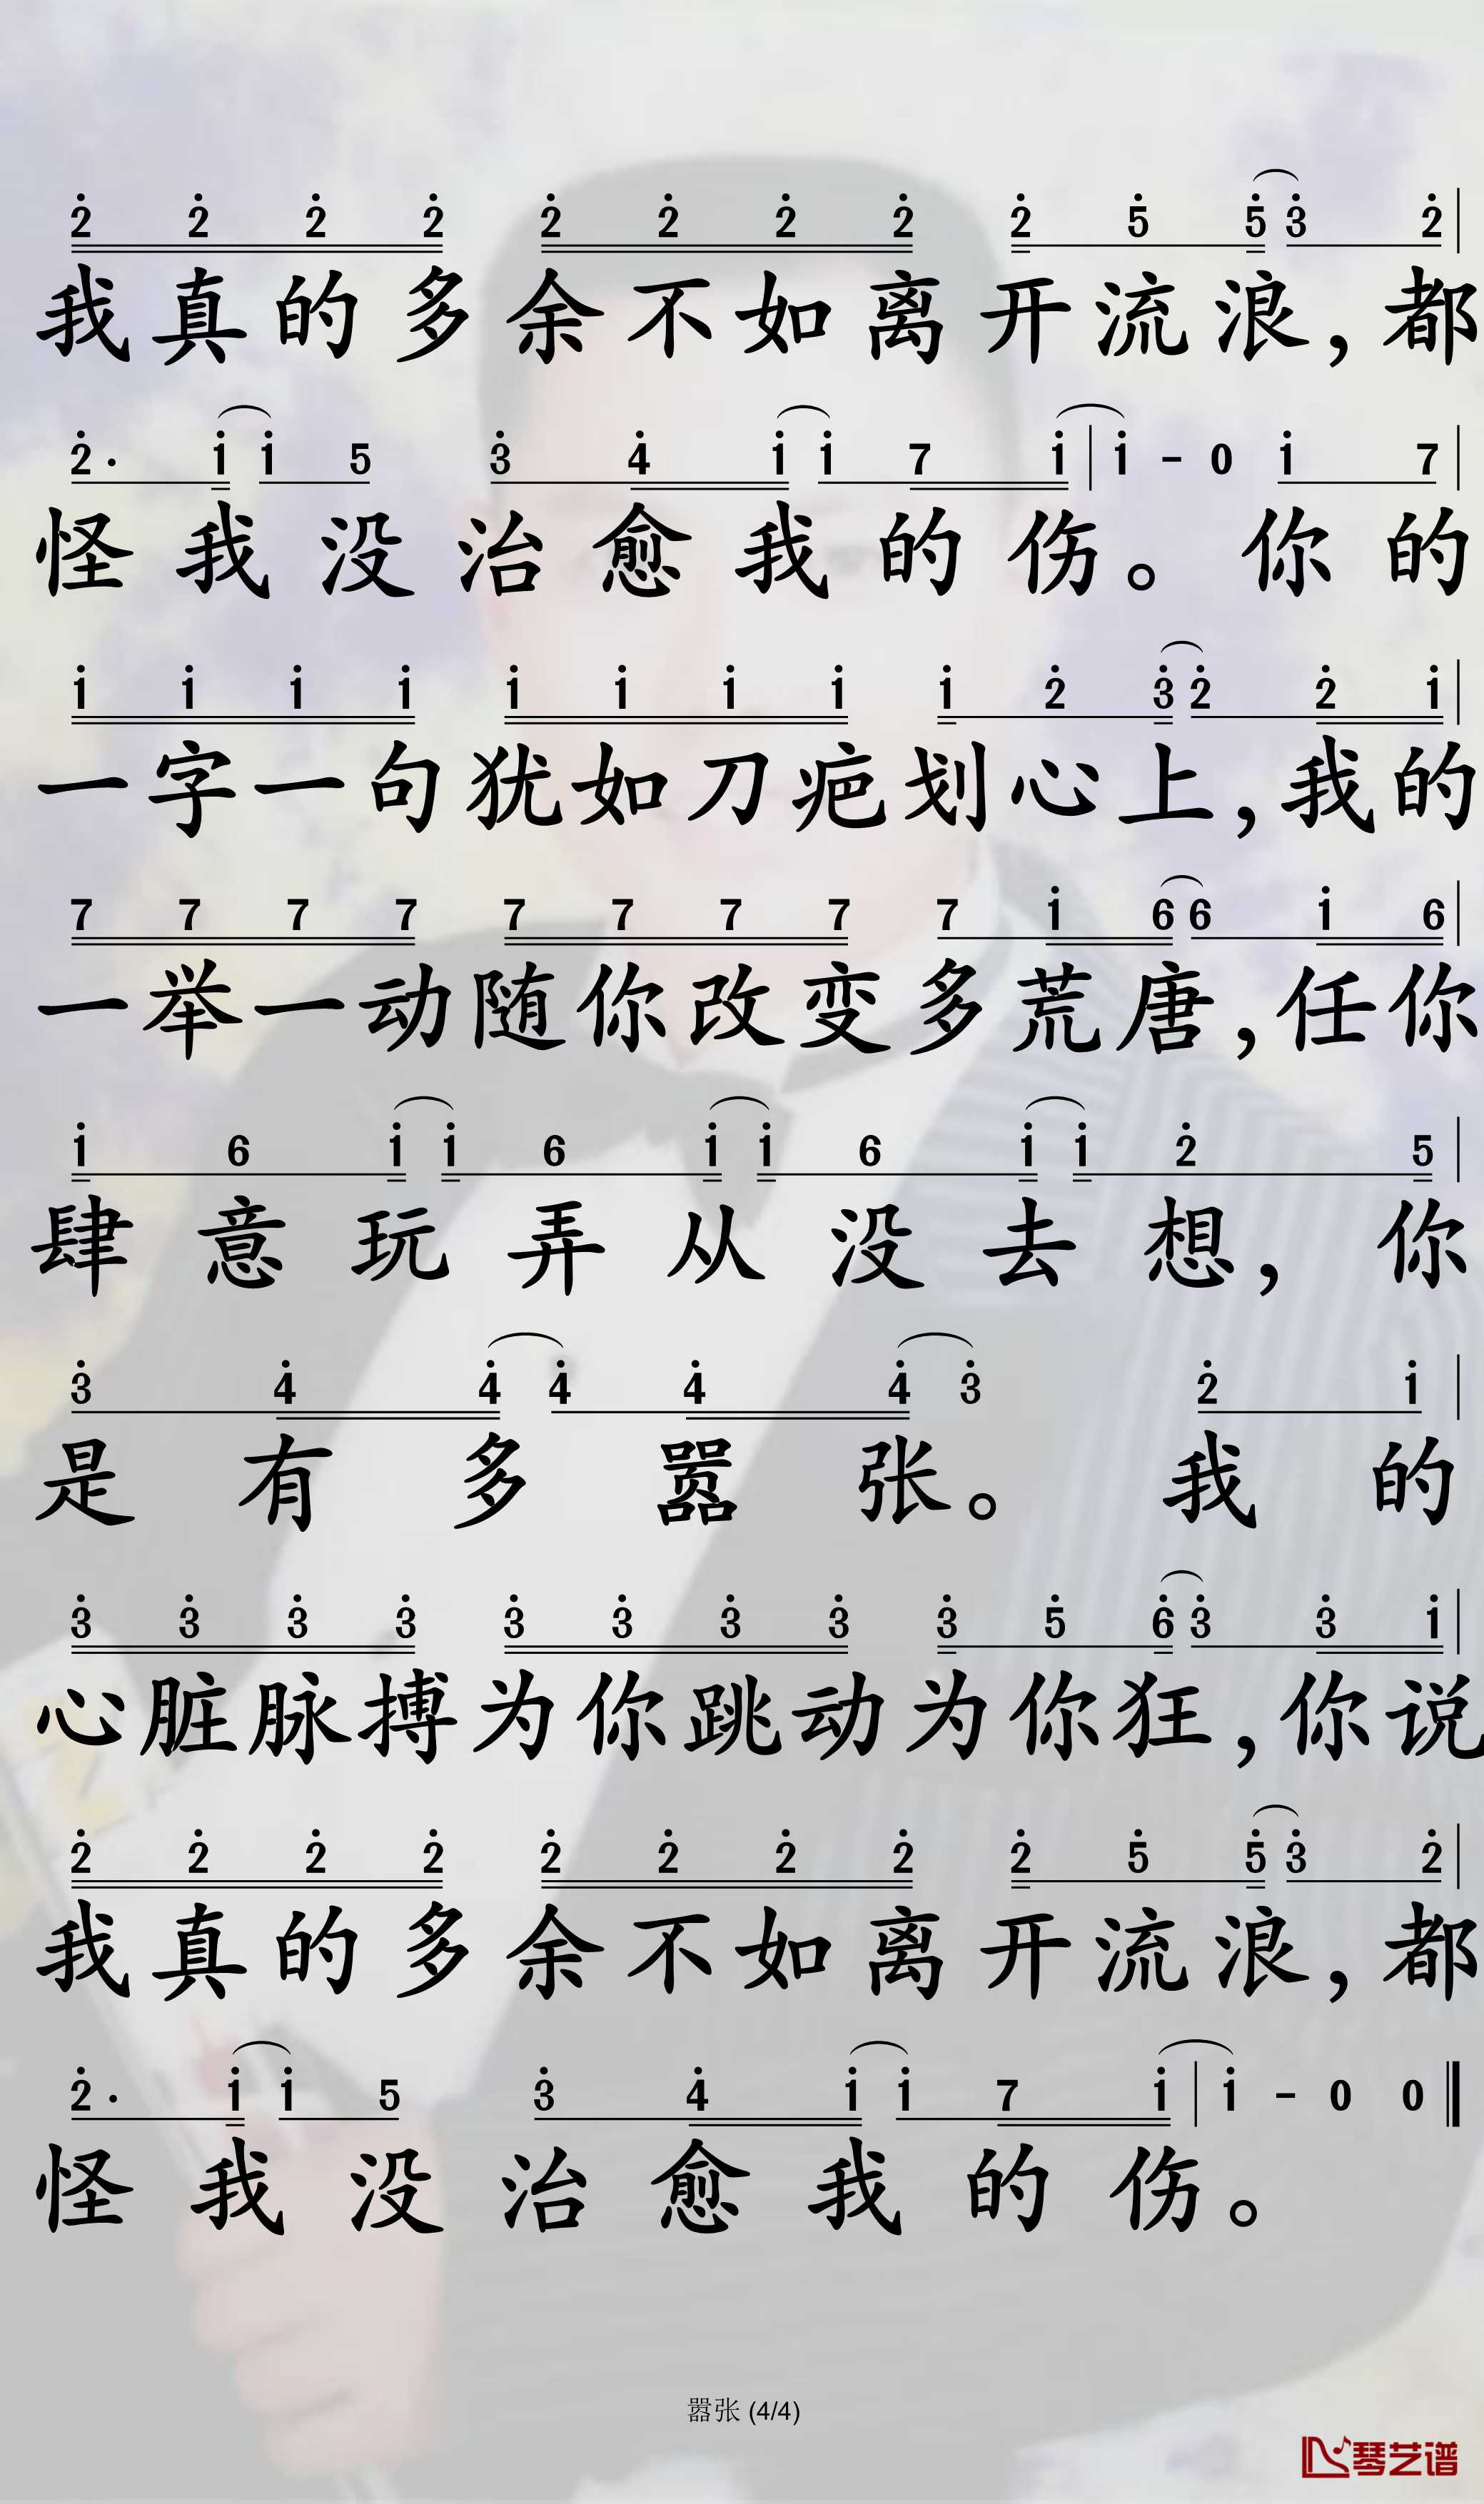 2̇ 2̇ 2̇ 2̇ 2̇ 2̇ 2̇ 2̇ 2̇ 5̇ 5̇ 3̇ 2̇ |
我真的多余不如离开流浪,都
2̇· 1̇ 1̇ 5 3̇ 4̇ 1̇ 1̇ 7 1̇ | 1̇ - 0 1̇ 7 |
怪我没治愈我的伤。你的
1̇ 1̇ 1̇ 1̇ 1̇ 1̇ 1̇ 1̇ 1̇ 2̇ 3̇ 2̇ 2̇ 1̇ |
一字一句犹如刀疤划心上,我的
7 7 7 7 7 7 7 7 7 1̇ 6 6 1̇ 6 |
一举一动随你改变多荒唐,任你
1̇ 6 1̇ 1̇ 6 1̇ 1̇ 6 1̇ 1̇ 2̇ 5 |
肆意玩弄从没去想,你
3̇ 4̇ 4̇ 4̇ 4̇ 4̇ 3̇ 2̇ 1̇ |
是有多嚣张。我的
3̇ 3̇ 3̇ 3̇ 3̇ 3̇ 3̇ 3̇ 3̇ 5̇ 6̇ 3̇ 3̇ 1̇ |
心脏脉搏为你跳动为你狂,你说
2̇ 2̇ 2̇ 2̇ 2̇ 2̇ 2̇ 2̇ 2̇ 5̇ 5̇ 3̇ 2̇ |
我真的多余不如离开流浪,都
2̇· 1̇ 1̇ 5 3̇ 4̇ 1̇ 1̇ 7 1̇ | 1̇ - 0 0 ‖
怪我没治愈我的伤。
嚣张 (4/4)
琴艺谱